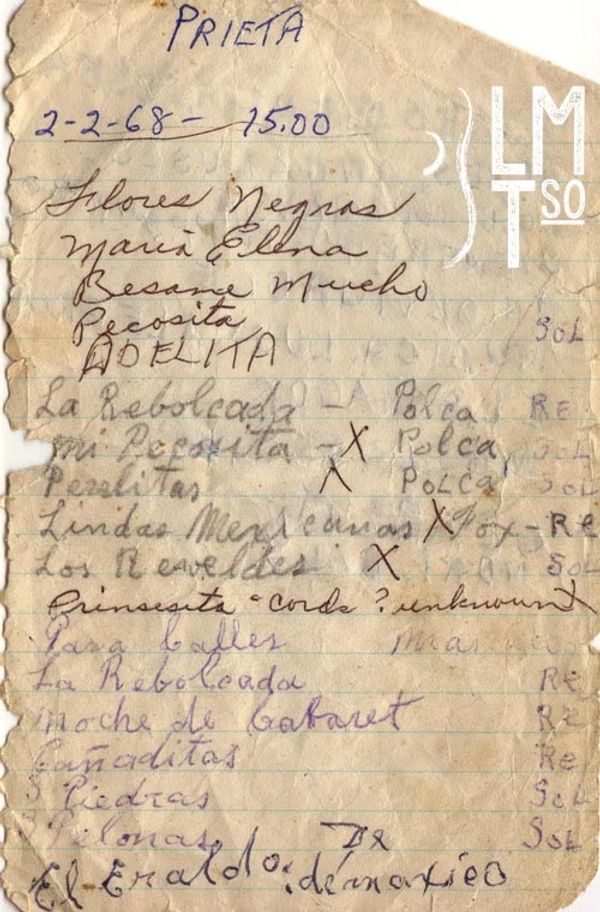 PRIETA
2-2-68- 15.00
LM
TSO
Flores Negras
Maria Elena
Besame Mucho
Pecosita SOL
ADELITA
La Rebolcada - Polca RE
mi Pecosita - X Polca SOL
Perlitas X POLCA SOL
Lindas Mexicanas X Fox - RE
Los Reveldes X SOL
Prinsesita "cords ? unknown X
Pasa Calles
La Rebolcada Re
Noche de Cabaret RE
Cañaditas Re
3 Piedras SOL
3 Pelonas SOL
El Eraldo: De méxico